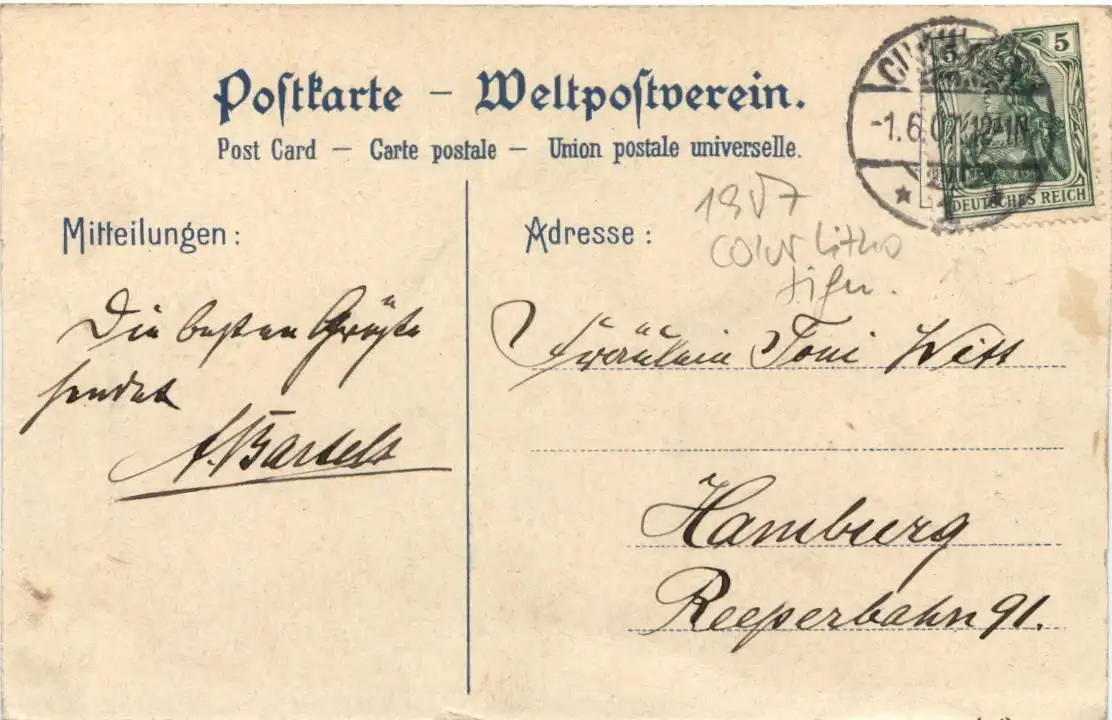 Postkarte – Weltpostverein.
Post Card – Carte postale – Union postale universelle.
5 5
-1.6.07. 12-1N
DEUTSCHES REICH
1907
color Litho
Mitteilungen:
Adresse:
Die besten Grüße
sendet
A. Bartels
Fräulein Toni Witt
Hamburg
Reeperbahn 91.